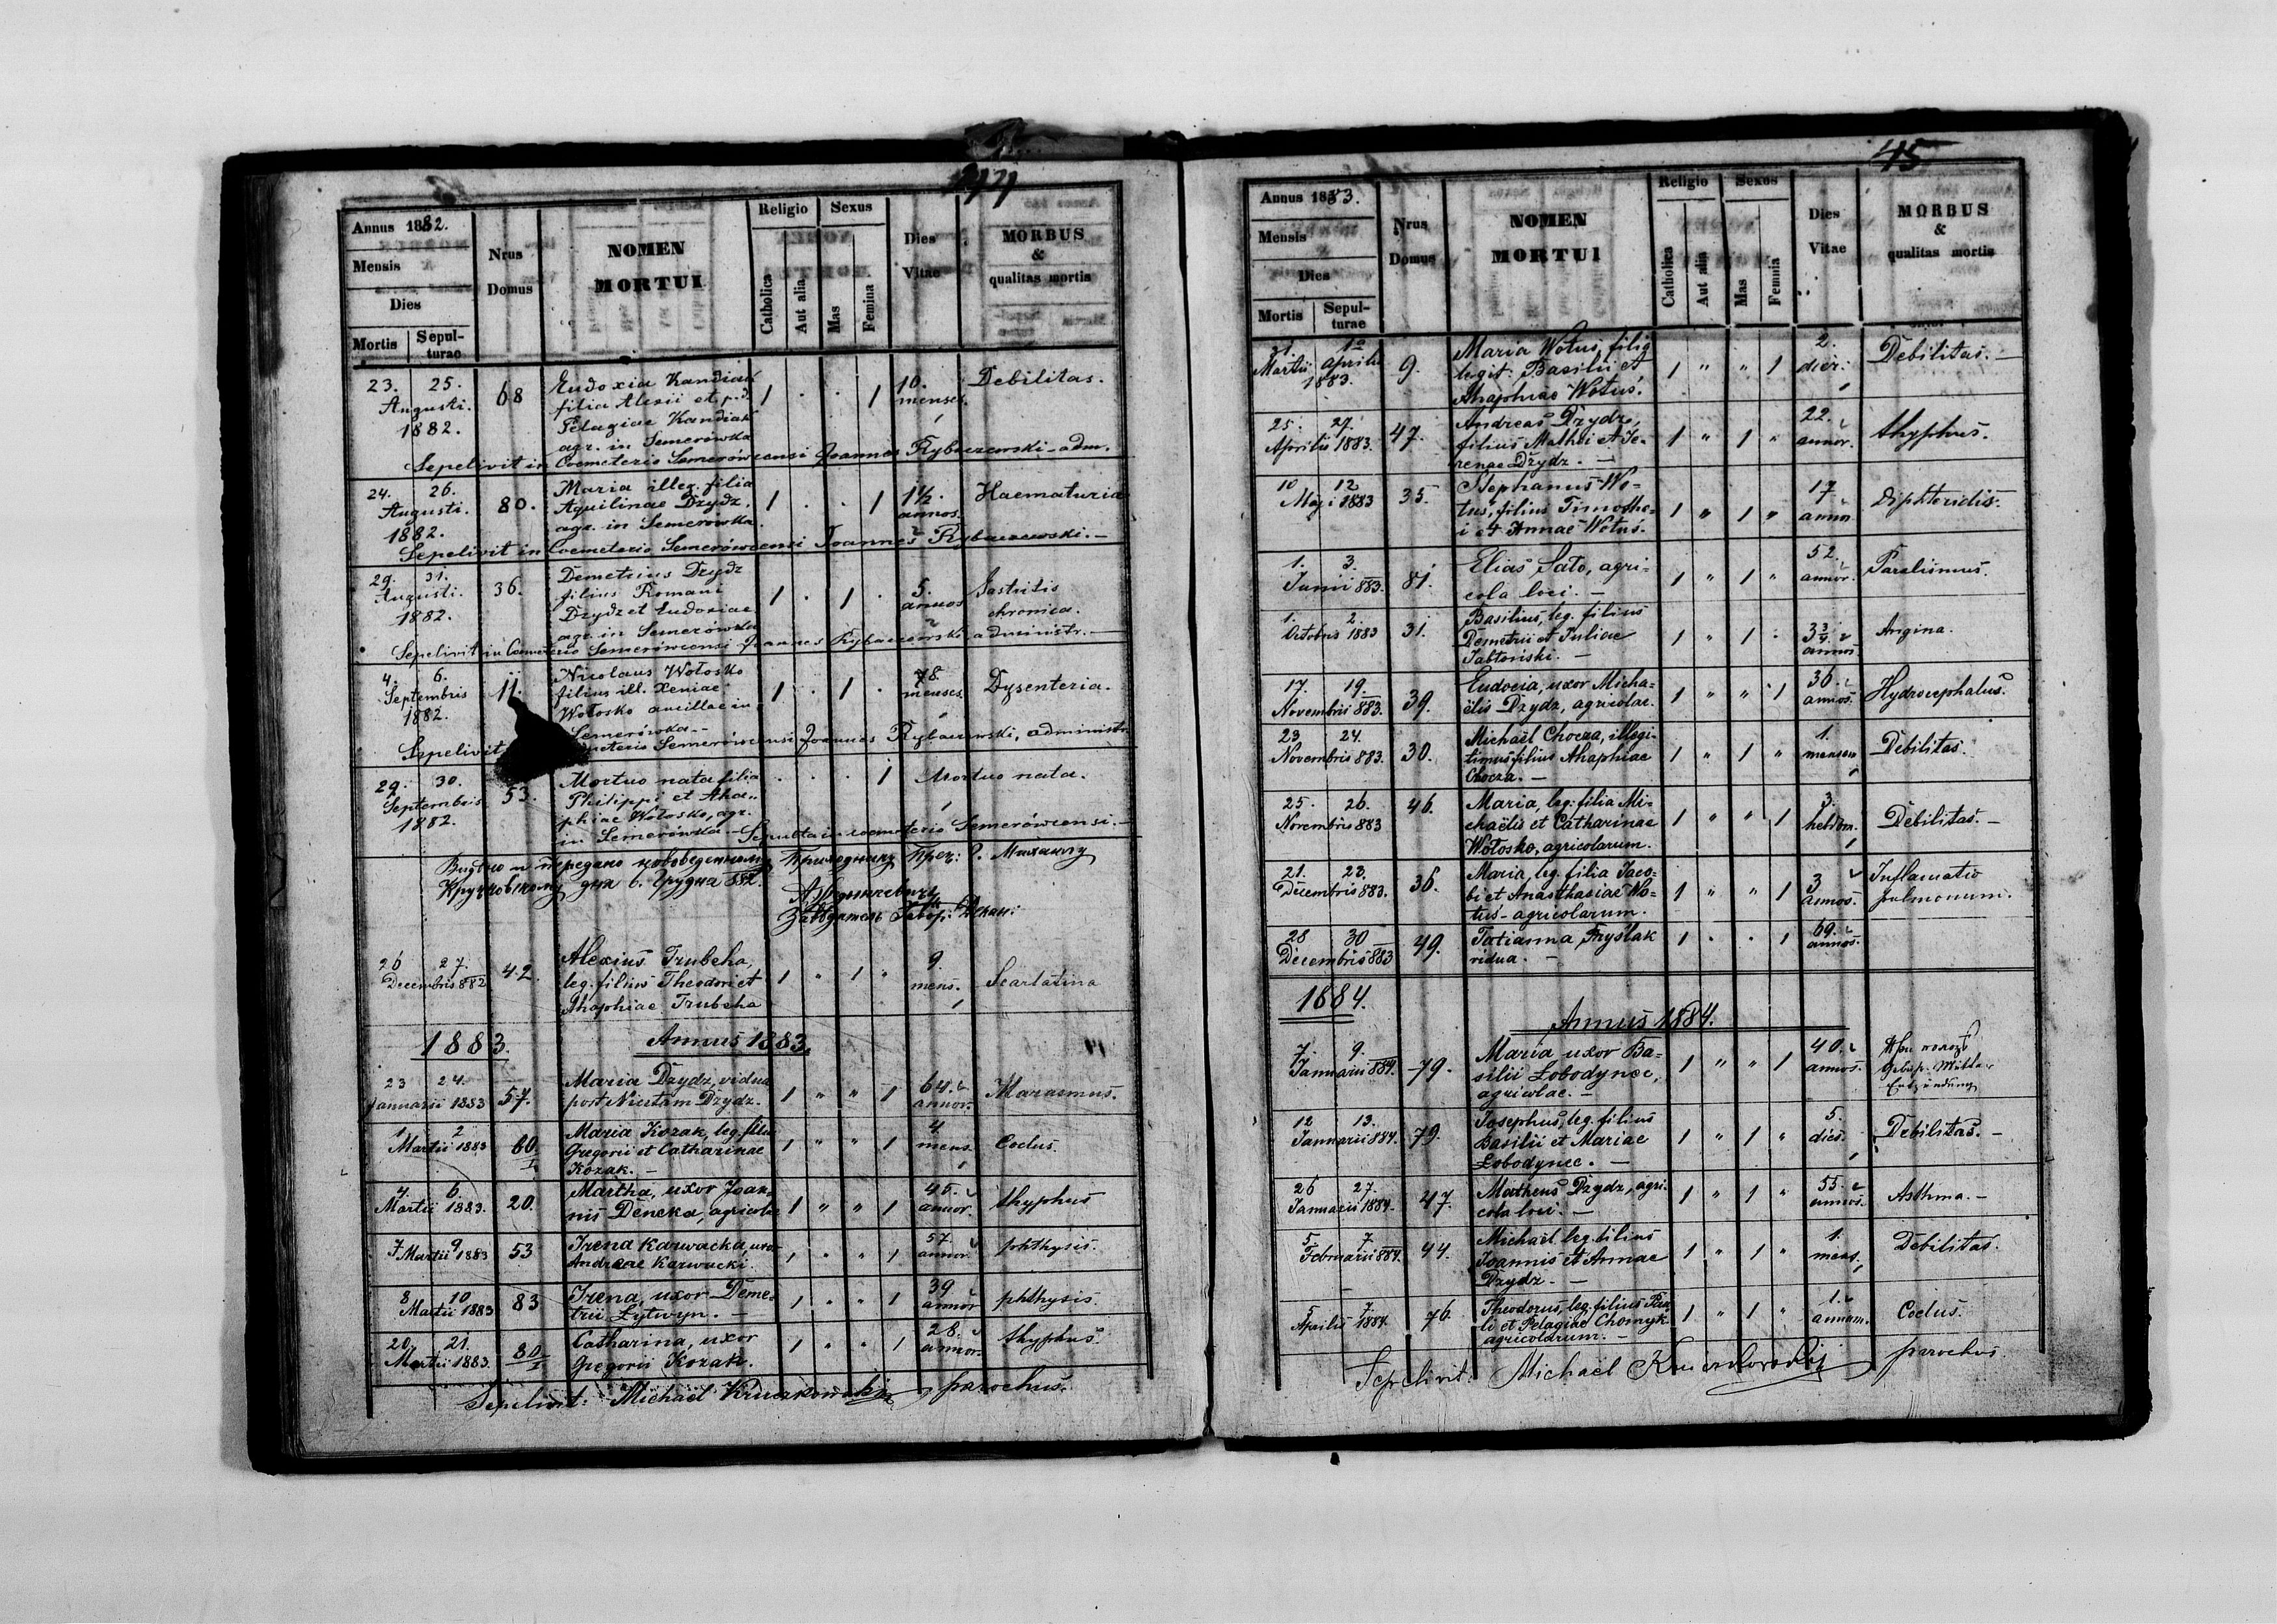 44
Annus 1882.
Mensis
Dies
Mortis
Sepul-
turae
Nrus
Domus
NOMEN
MORTUI
Religio
Catholica
Aut alia
Sexus
Mas
Femina
Dies
Vitae
MORBUS
&
qualitas mortis
23. 25. Eudoxia Kandiak 10. Debilitas.
Augusti. 68 filia Alexii et p.d. 1 . . 1 menses.
1882. Pelagiae Kandiak
agr. in Semerówka
Sepelivit in Coemeterio Semerówcensi Joannes Rybaczewski - adm.
24. 26. Maria illeg. filia 1½. Haematuria
Augusti. 80. Aquilinae Dzydz, 1 . . 1 annos.
1882. agr. in Semerówka.
Sepelivit in Coemeterio Semerówcensi Joannes Rybaczewski. -
29. 31. Demetrius Dzydz
Augusti. 36. filius Romani 1 . 1 . 5. Gastritis
1882. Dzydz et Eudoxiae annos chronica.
agr. in Semerówka
Sepelivit in Coemeterio Semerówcensi Joannes Rybaczewski administr. -
4. 6. Nicolaus Wołosko 78.
Septembris 11. filius ill. Xeniae 1 . 1 . menses. Dysenteria.
1882. Wołosko ancillae in
Semerówka -
Sepelivit Semerówcensi Joannes Rybaczewski, administr.
29. 30. Mortuo nata filia . . . 1 Mortuo nata.
Septembris 53. Philippi et Aha-
1882. phiae Wołosko, agr.
in Semerówka. - Sepulta in coemeterio Semerówcensi. -
Видѣно и передано нововведенному Приходнику Преч: О. Михаилу
Кручковскому дня 6. Грудня 882.
26 27. Alexius Trubcha, 9.
Decembris 882 42. leg. filius Theodori et 1 " 1 " mens. Scarlatina
Ahaphiae Trubcha
1883. Annus 1883.
23 24. Maria Dzydz, vidua 64.
Januarii 1883 57. post Nicetam Dzydz. 1 " " 1 annor. Marasmus.
1 2 Maria Kozak, leg. filia 4.
Martii 1883 60. Gregorii et Catharinae 1 " " 1 mens. Coclus.
I Kozak. -
4. 6. Martha, uxor Joan- 45.
Martii 1883. 20. nis Deneka, agricolae 1 " " 1 annor. thyphus
7 9 Irena Karwacka, uxor 57.
Martii 1883 53 Andreae Karwacki. 1 " " 1 annor. phthysis.
8 10 Irena, uxor Deme- 39
Martii 1883 83 trii Łytwyn. - 1 " " 1 annor phthysis.
20. 21. Catharina, uxor 28.
Martii 1883. 80 Gregorii Kozak. 1 " " 1 annor. thyphus.
I
Sepelivit: Michaël Kruczkowski parochus.
45
Annus 1883.
Mensis
Dies
Mortis
Sepul-
turae
Nrus
Domus
NOMEN
MORTUI
Religio
Catholica
Aut alia
Sexus
Mas
Femnia
Dies
Vitae
MORBUS
&
qualitas mortis
31. 1o Maria Wotus, filia 2.
Martii Aprilis 9. legit. Basilii et 1 " " 1 dier. Debilitas. -
1883. Ahaphiae Wotus.
25. 27. Andreas Dzydz, 22.
Aprilis 1883. 47. filius Mathei et Ie- 1 " 1 " annor. thyphus.
renae Dzydz. -
10 12 Stephanus Wo- 17
Maji 1883 35. tus, filius Timothe- 1 " 1 " annor. diphteridis.
i et Annae Wotus.
1. 3. Elias Sato, agri- 52.
Junii 883. 81. cola loci. - 1 " 1 " annor. Paralismus.
1. 2. Basilius, leg. filius
Octobris 1883 31. Demetrii et Juliae 1 " 1 " 3¾. Angina.
Jabłoński. - annos.
17. 19. Eudocia, uxor Micha- 36.
Novembris 883. 39. ëlis Dzydz, agricolae. 1 " " 1 annos. Hydrocephalus.
23 24. Michaël Chocza, illegi- 1.
Novembris 883. 30. timus filius Ahaphiae 1 " 1 " mensem Debilitas.
Chocza. -
25. 26. 46. Maria, leg. filia Mi- 3.
Novembris 883 chaëlis et Catharinae 1 " " 1 hebdom. Debilitas. -
Wołosko, agricolarum.
21. 23. Maria, leg. filia Jaco- Inflamatio
Decembris 883. 36. bi et Anasthasiae Wo- 1 " " 1 3 annos. pulmonum.
tus - agricolarum.
28 30 49. Tatianna Fryślak 1 . . 1 69.
Decembris 883 vidua. - annos.
1884. Annus 1884.
7. 9. Maria uxor Ba- 40.
Januarii 884. 79. silii Łobodynec, 1 " " 1 annos.
agricolae. -
12 13. Josephus, leg. filius 5.
Januarii 884. 79. Basilii et Mariae 1 " 1 " dies. Debilitas. -
Łobodynec. -
26 27. Matheus Dzydz, agri- 55.
Januarii 1884. 47. cola loci. - 1 " 1 " annos. Asthma. -
5 7 Michaël leg. filius 1.
Februarii 884. 44. Joannis et Annae 1 " 1 " mens. Debilitas.
Dzydz. -
5 7. Theodorus, leg. filius Pau- 1.
Aprilis 1884 76. li et Pelagiae Chomyk 1 " 1 " annum. Coclus.
agricolarum. -
Sepelivit: Michaël Kruczkowski parochus.